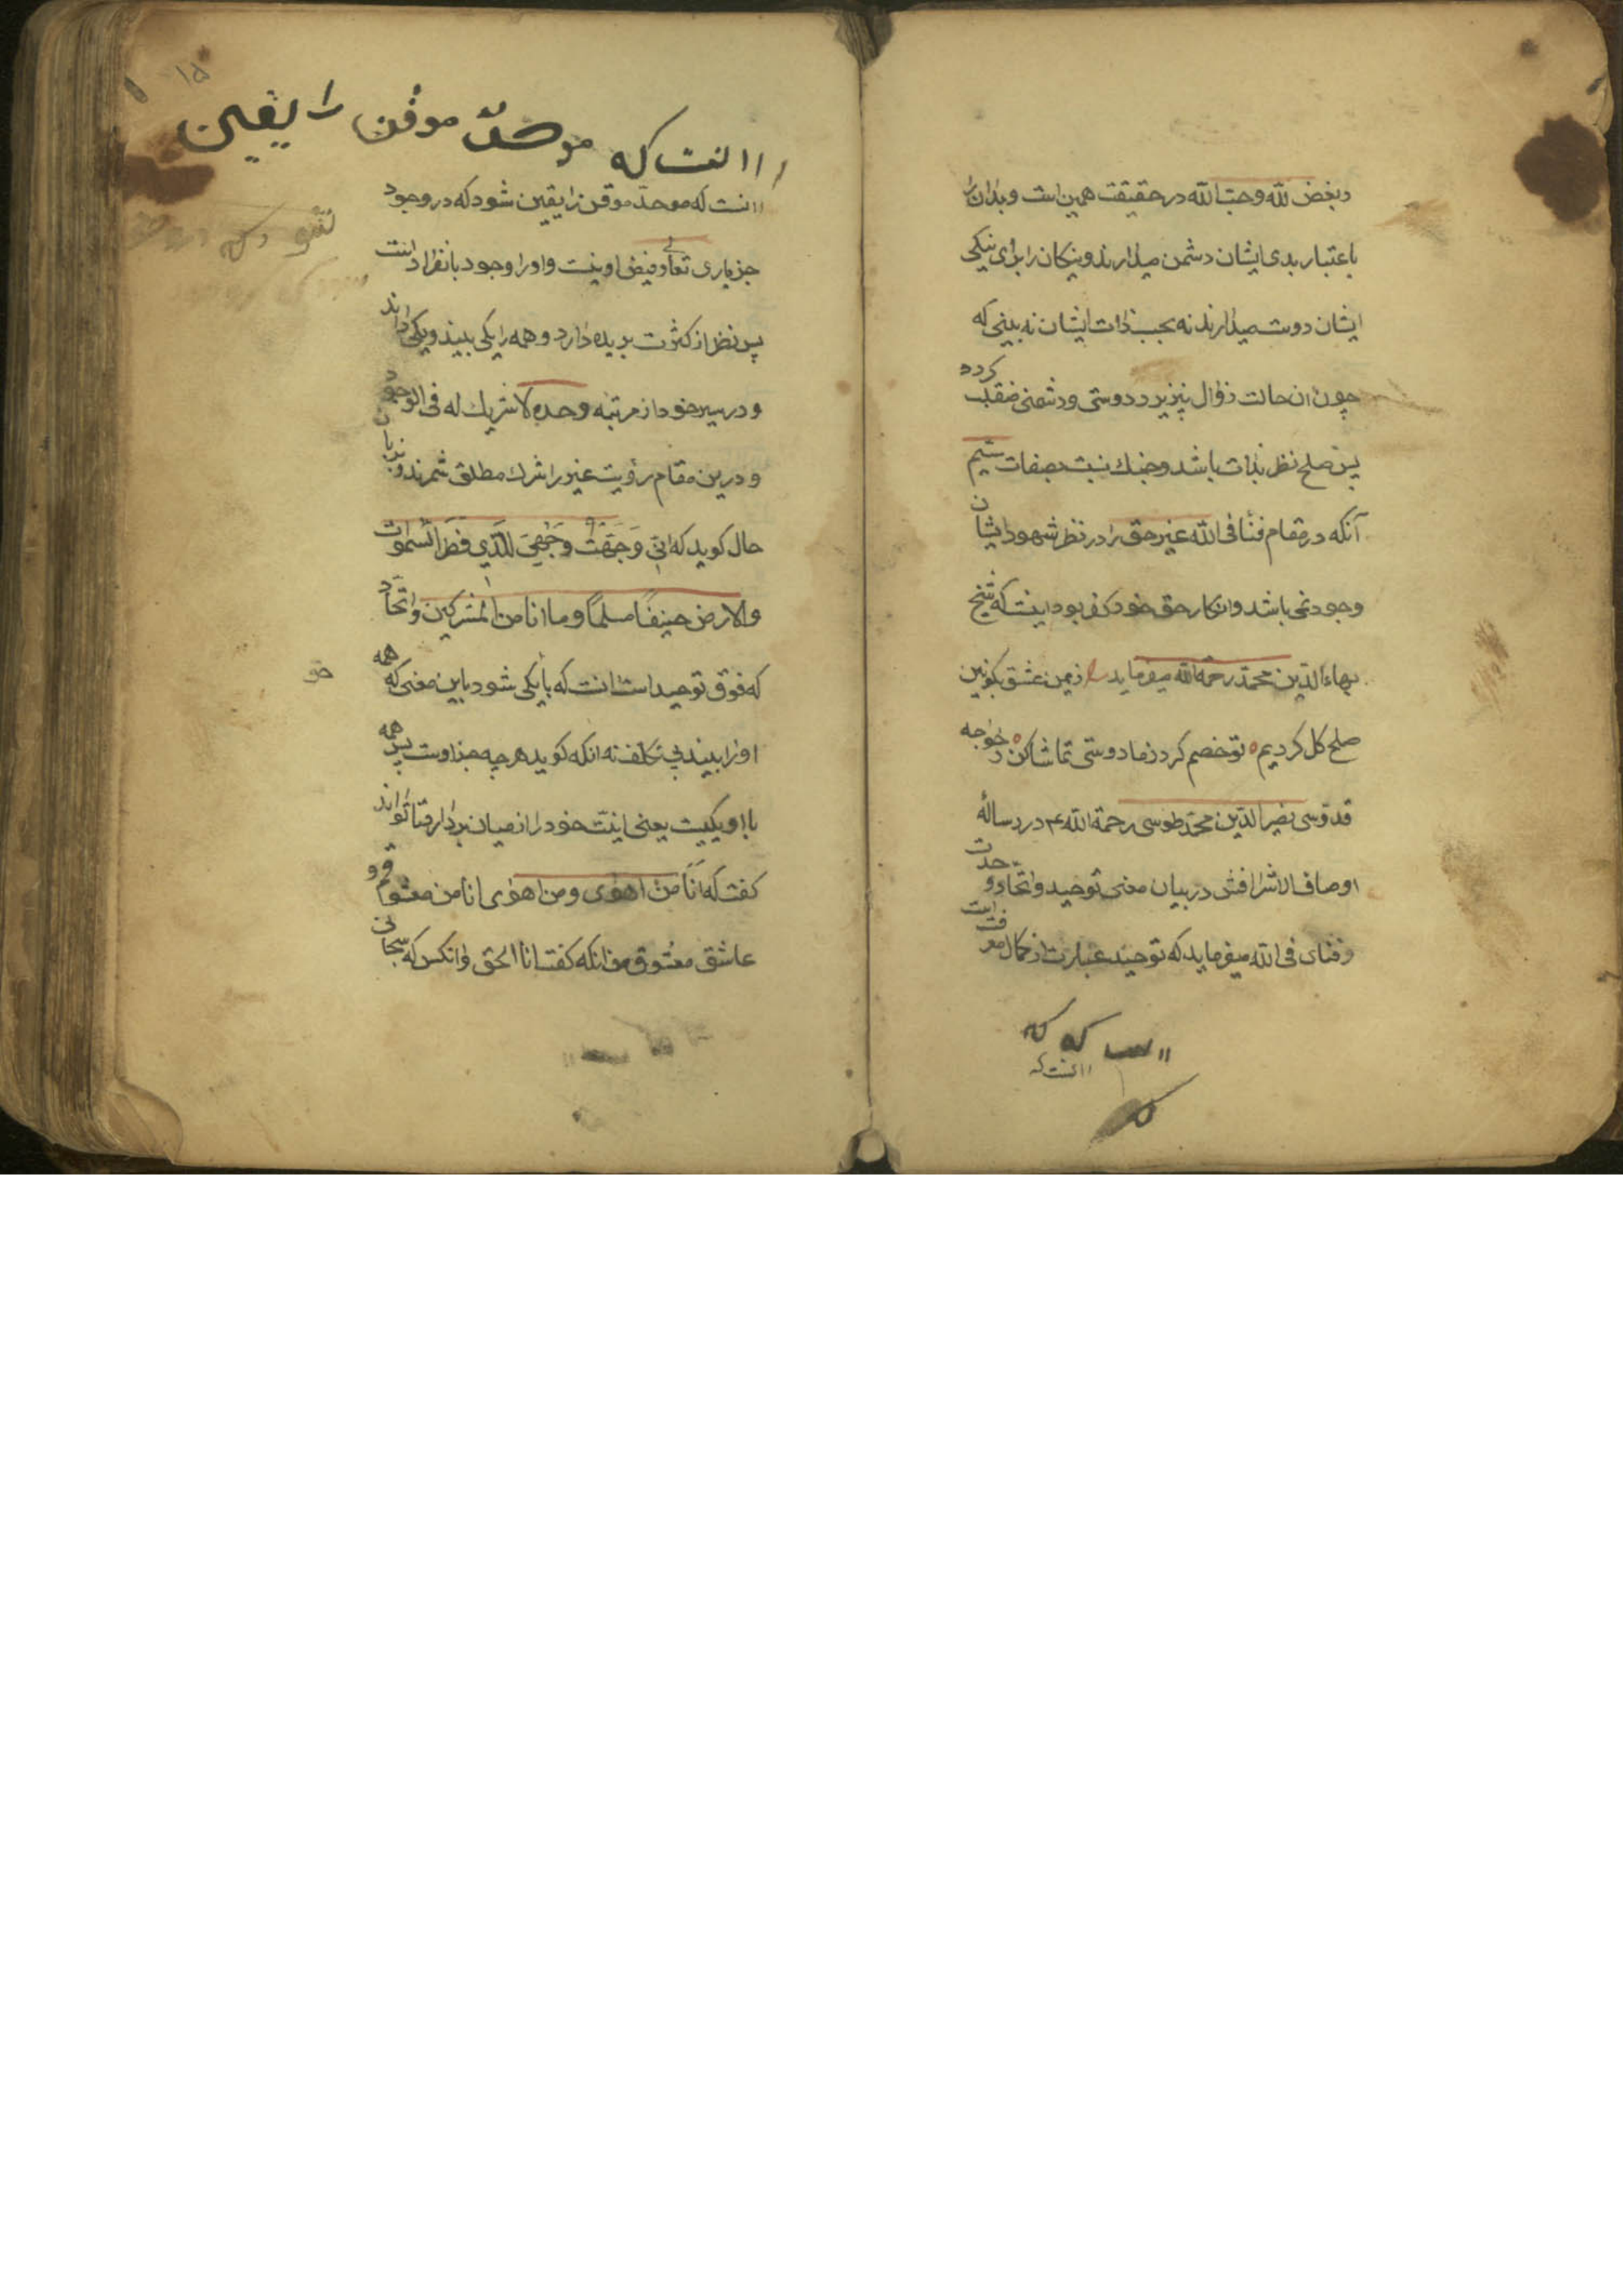 و بغض لله و حب الله در حقیقت همین است و بدان را
باعتبار بدی ایشان دشمن میدارند و نیکان را برای نیکی
ایشان دوست میدارند نه بحسب ذات ایشان نه بینی که
چون ان حالت زوال پذیرد دوستی و دشمنی منقلب کردد
پس صلح نظر بذات باشد و جنك نسبت بصفات سیم
آنکه در مقام فنا فی الله غیر حق را در نظر شهود ایشان
وجود نمی باشد و انکار حق خود کفر بود اینست که شیخ
بهاءالدین محمد رحمه الله میفرماید زیمن عشق بکونین
صلح کل کردیم ٥ تو خصم کرد زما دوستی تماشا کن ٥ و خواجه
قدوسی نصیر الدین محمد طوسی رحمة الله ع در رسالۀ
اوصاف الاشراف در بیان معنی توحید و اتحاد و وحدت
و فنای فی الله میفرماید که توحید عبارت از کمال معرفت است
اانست که
اانست که موحد موقن را یقین
اانست که موحد موقن را یقین شود که در وجود
جز باری تعالی و فیض او نیست و او را وجود بانفراد است
پس نظر از کثرت بریده دارد و همه را یکی بیند و یکی داند
و در سیر خود از مرتبه وحده لا شریك له فی الوجود
و درین مقام رؤیت غیر را شرك مطلق شمرند و بزبان
حال کوید که انی وَجَّهَتُ وَجْهِیَ لِلَّذِي فَطَرَ السَّمٰوات
والارض حنیفًا مسلمًا و ما انا من المشرکین و اتحاد
که فوق توحید است انست که با یکی شود باین معنی که همه
او را بیند بی تکلف نه انکه کوید هر چه جز اوست پس همه
با او یکیست یعنی اینست خود را از میان بردارد تا تواند
کفت که اَنَا من اهوٰی و من اهوٰی انا من معشوقم و
عاشق معشوق من انکه کفت انا الحق و انکس که سبحانی